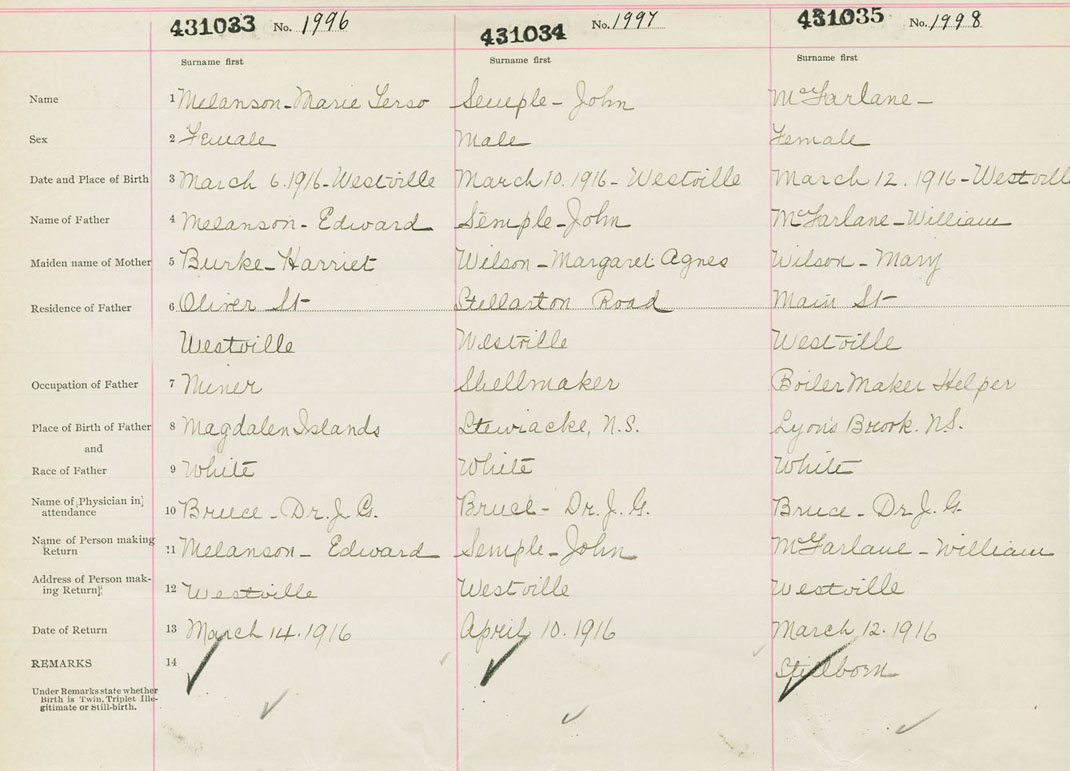 431033 No. 1996 431034 No. 1997 431035 No. 1998
Surname first Surname first Surname first
Name 1 Melanson - Marie Terso Semple - John McFarlane -
Sex 2 Female Male Female
Date and Place of Birth 3 March 6. 1916 - Westville March 10. 1916 - Westville March 12. 1916 - Westville
Name of Father 4 Melanson - Edward Semple - John McFarlane - William
Maiden name of Mother 5 Burke - Harriet Wilson - Margaret Agnes Wilson - Mary
Residence of Father 6 Oliver St Stellarton Road Main St
Westville Westville Westville
Occupation of Father 7 Miner Shellmaker Boiler Maker Helper
Place of Birth of Father 8 Magdalen Islands Stewiacke, N.S. Lyon's Brook. N.S.
and
Race of Father 9 White White White
Name of Physician in
attendance 10 Bruce - Dr. J. G. Bruce - Dr. J. G. Bruce - Dr. J. G.
Name of Person making
Return 11 Melanson - Edward Semple - John McFarlane - William
Address of Person mak-
ing Return 12 Westville Westville Westville
Date of Return 13 March 14. 1916 April 10. 1916 March 12. 1916
REMARKS 14 Stillborn
Under Remarks state whether
Birth is Twin, Triplet Ille-
gitimate or Still-birth.